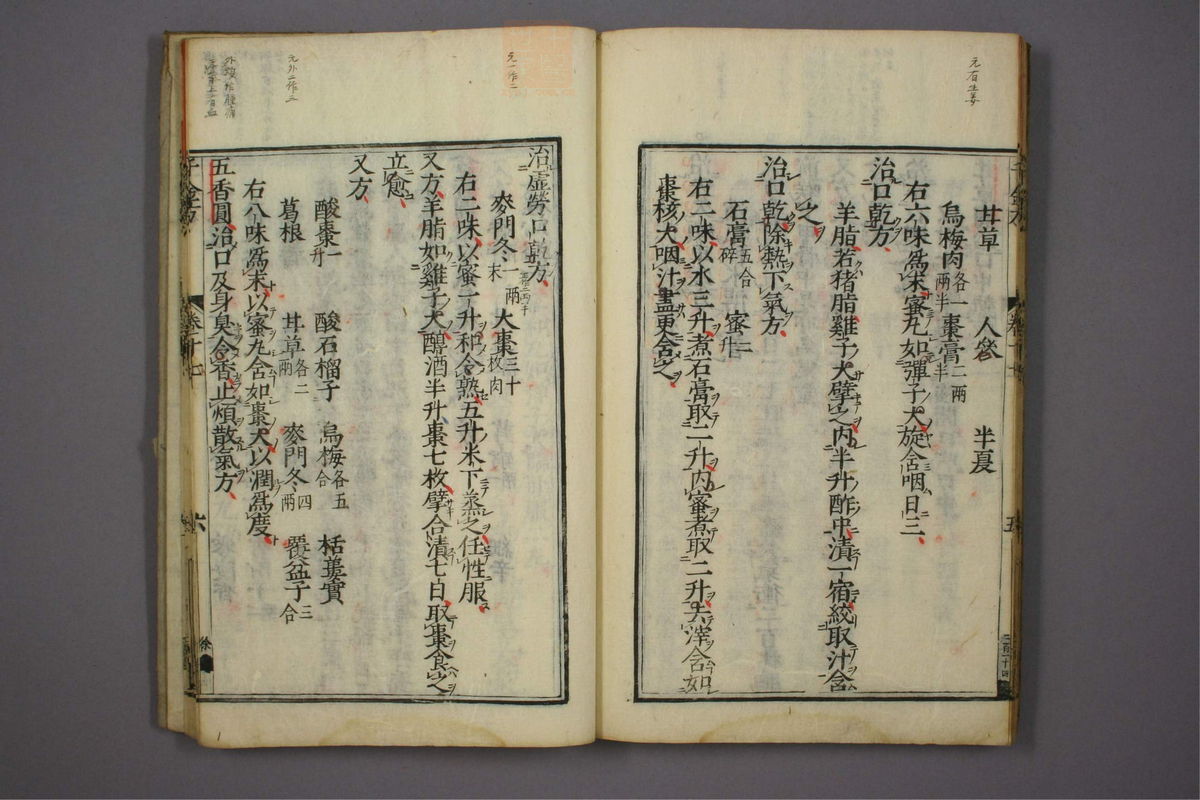 元有生姜
甘草 人參 半夏
烏梅肉各一兩半 棗膏二兩半
右六味爲末蜜丸如彈子大旋含咽日三
治口乾方
羊脂若猪脂雞子大擘之内半升酢中漬一宿絞取汁含
之
治口乾除熱下氣方
石膏五合碎 蜜二升
右二味以水三升煮石膏取二升内蜜煮取二升去滓含如
棗核大咽汁盡更含之
千金方 卷十七 五
元一作二
元外二作三
治虛勞口乾方
麥門冬一兩末 大棗三十枚肉
右二味以蜜一升和令熟五升米下蒸之任性服
又方羊脂如雞子大醇酒半升棗七枚擘合漬七日取棗食之
立愈
又方
酸棗一升 酸石榴子 烏梅各五合 栝蔞實
葛根 甘草各二兩 麥門冬四兩 覆盆子三合
右八味爲末以蜜丸含如棗大以潤爲度
五香圓治口及身臭令香止煩散氣方
千金方 卷十七 六